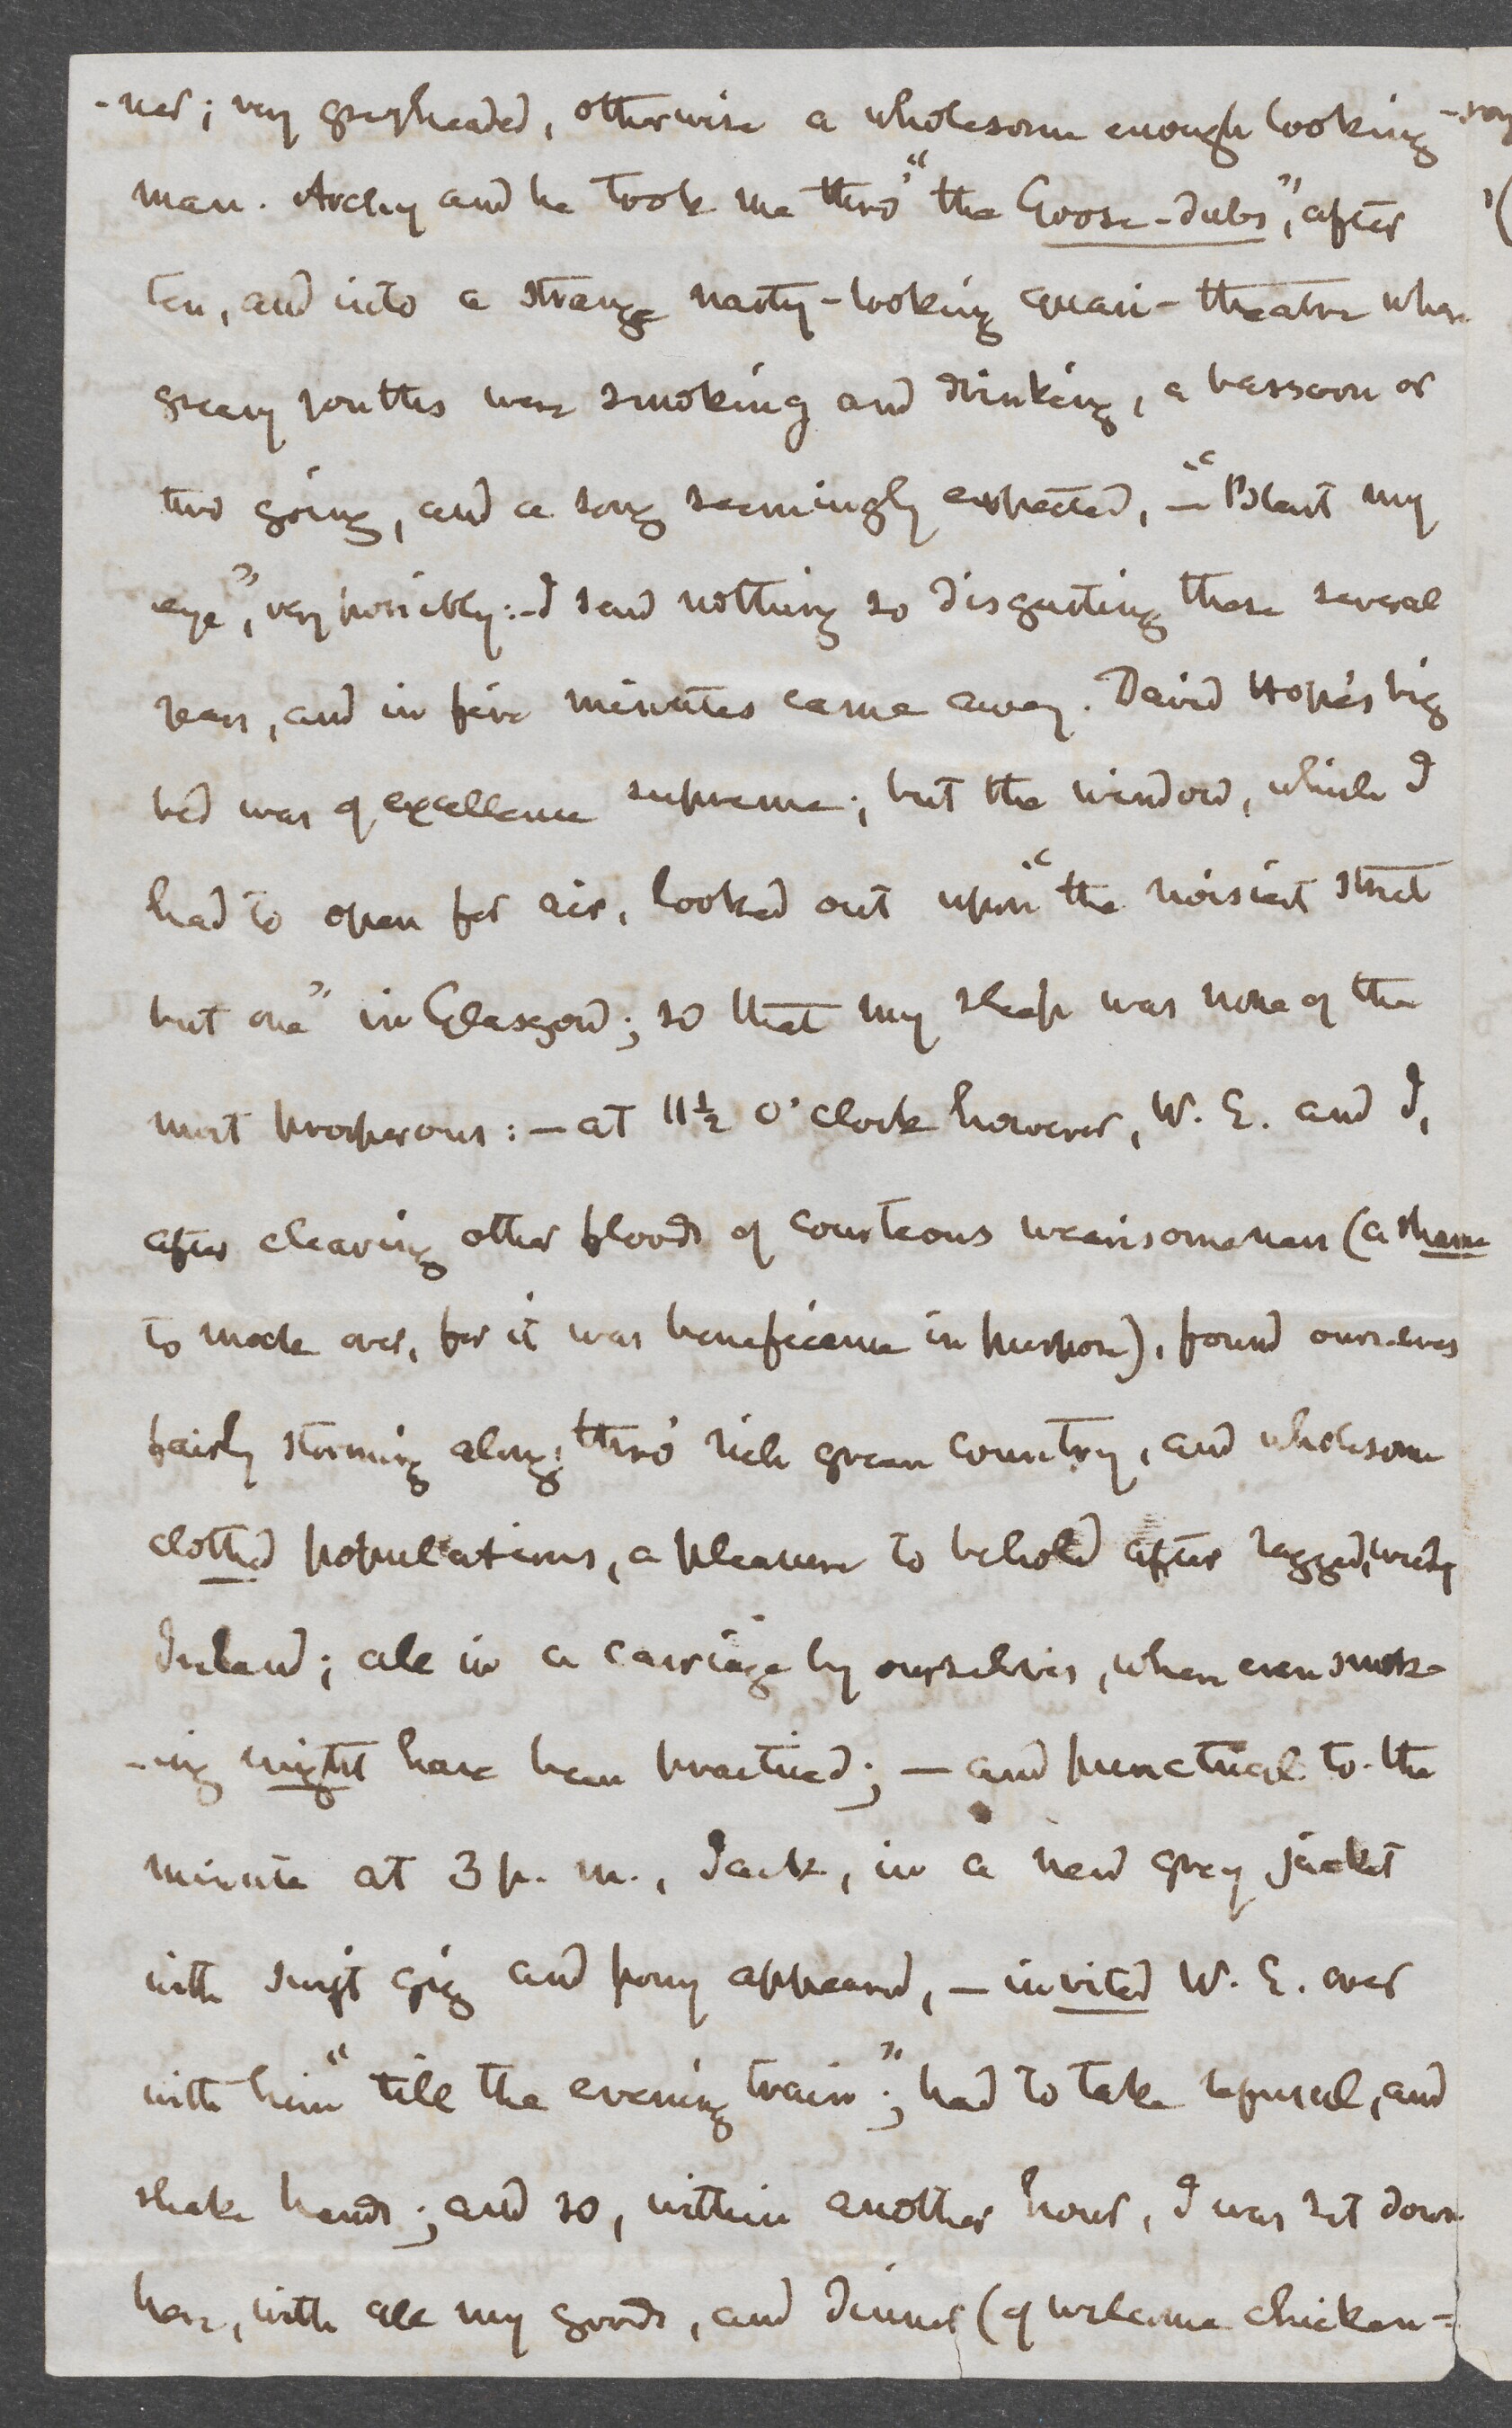 -ner; very greyheaded, otherwise a wholesome enough looking
man. Archy and he took me thro' "the Goose-dubs", after
ten, and into a strange nasty-looking quasi-theatre where
greasy youths were smoking and drinking, a bassoon or
two going, and a song seemingly expected, — "Blast my
eye", very possibly: - I saw nothing so disgusting these several
years, and in five minutes came away. David Hope's big
bed was of excellence supreme; but the window, which I
had to open for air, looked out upon "the noisiest street
but one" in Glasgow; so that my sleep was none of the
most prosperous: — at 11½ o'clock however, W. E. and I,
after cleaving other floods of courteous wearisomeness (a shame
to mock over, for it was beneficence in purpose), found ourselves
fairly storming along, thro' rich green country, and wholesome
clothed populations, a pleasure to behold after ragged,
Ireland; all in a carriage by ourselves, where even smok-
-ing might have been practised; — and punctual to the
minute at 3 p. m., Jack, in a new grey jacket
with swift gig and pony appeared, — invited W. E. over
with him "till the evening train"; had to take refusal, and
shake hands; and so, within another hour, I was set down
here, with all my goods, and dinner (of welcome chicken-